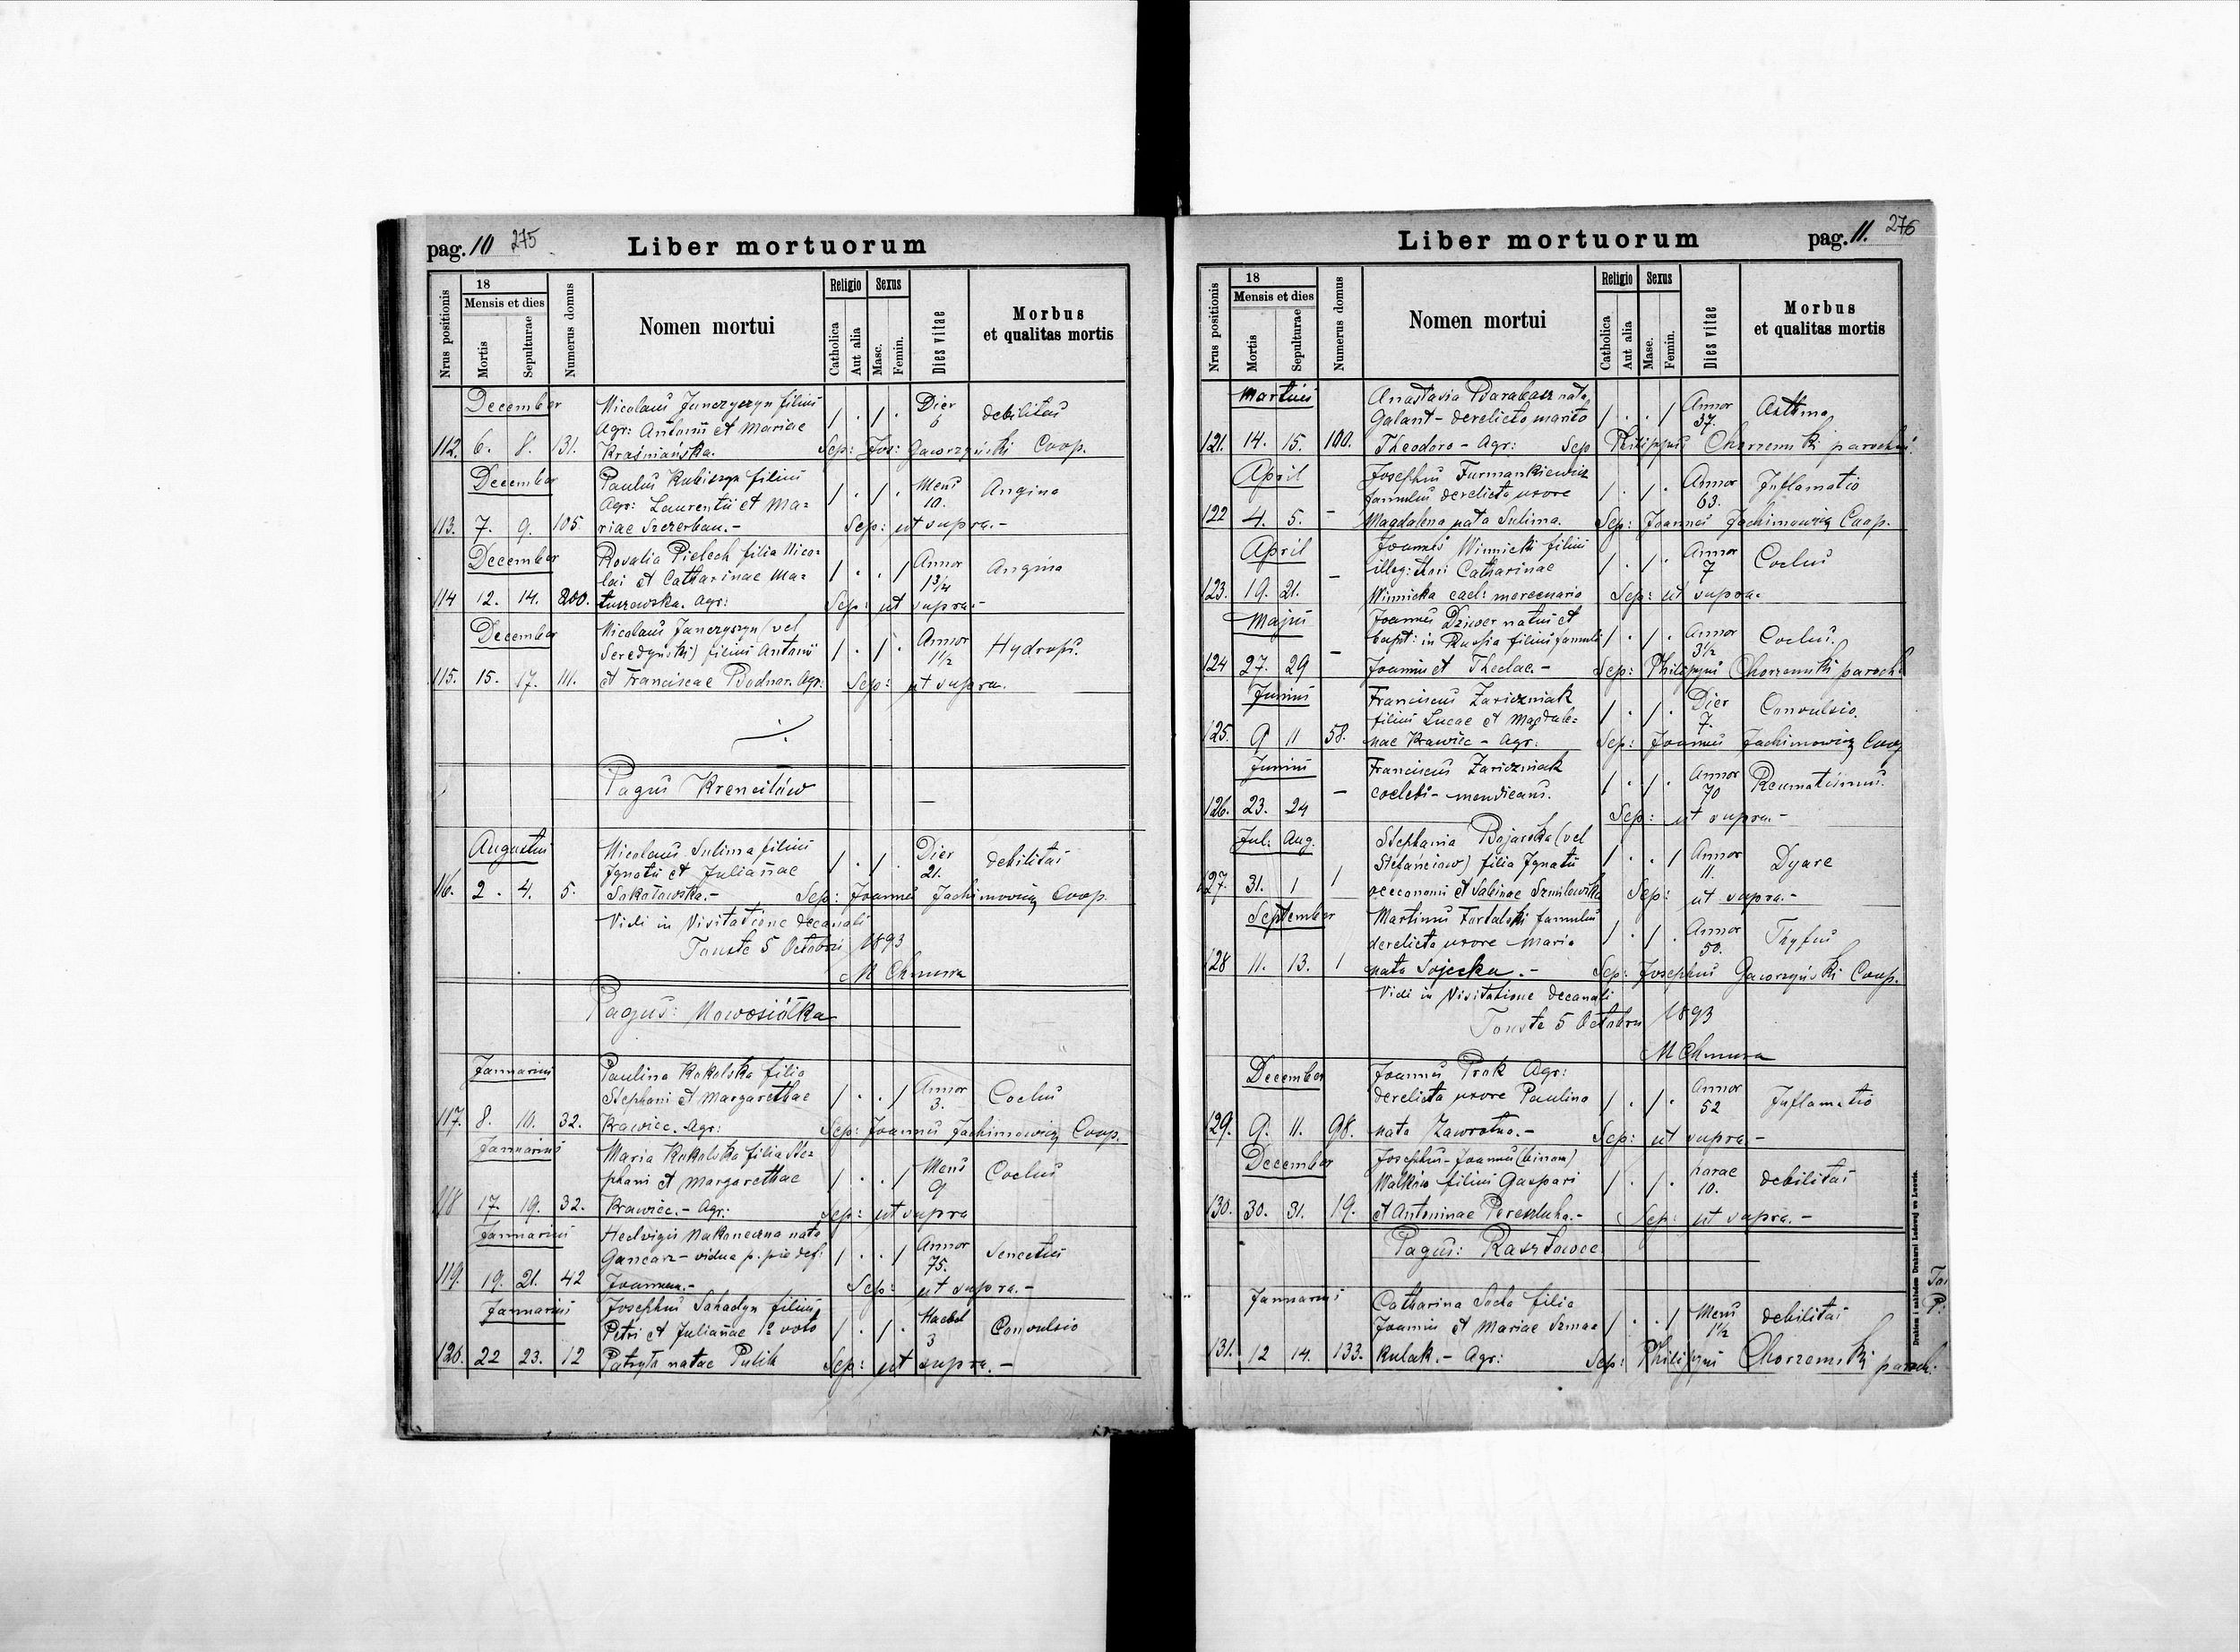 pag. 10 275
Liber mortuorum
Nrus positionis
18
Mensis et dies
Mortis
Sepulturae
Numerus domus
Nomen mortui
Religio
Catholica
Aut alia
Sexus
Masc.
Femin.
Dies vitae
Morbus
et qualitas mortis
December
112. 6. 8. 131.
Nicolaus Janczyszyn filius
Agr: Antonii et Mariae
Kraśniańska.
Dier
6
debilitas
Sep: Jos: Gaworzyński Coop.
December
113. 7. 9. 105
Paulus Kubiszyn filius
Agr: Laurentii et Ma-
riae Szczerban.-
Mens
10.
Angina
Sep: ut supra.-
December
114 12. 14. 200.
Rosalia Pielech filia Nico-
lai et Catharinae Ma-
tuszowska. Agr:
Annor
1 3/4
Angina
Sep: ut supra.-
December
115. 15. 17. 111.
Nicolaus Janczyszyn (vel
Seredyński) filius Antonii
et Franciscae Bodnar. Agr:
Annor
1 1/2
Hydrops.
Sep: ut supra.
Pagus Krenciłów
Augustus
116. 2. 4. 5.
Nicolaus Sulima filius
Ignatii et Julianae
Sokołowska.-
Dier
21.
debilitas
Sep: Joannes Jachimowicz Coop.
Vidi in Visitatione decanali
Touste 5 Octobri 1893
M Chmura
Pagus: Nowosiółka
Januarius
117. 8. 10. 32.
Paulina Kokolska filia
Stephani et Margarethae
Krawiec. Agr:
Annor
3.
Coclus
Sep: Joannes Jachimowicz Coop.
Januarius
118 17. 19. 32.
Maria Kokolska filia Ste-
phani et Margarethae
Krawiec.- Agr:
Mens
9
Coclus
Sep: ut supra
Januarius
119. 19. 21. 42
Hedvigis Nakoneczna nata
Gancarz - vidua p. pie def:
Joannem.-
Annor
75.
Senectus
Sep: ut supra.-
Januarius
120. 22 23. 12
Josephus Sahadyn filius
Petri et Julianae 1º voto
Patryło natae Pulik
Hebd
3
Convulsio
Sep: ut supra.-
Liber mortuorum
pag. 11. 276
Nrus positionis
18
Mensis et dies
Mortis
Sepulturae
Numerus domus
Nomen mortui
Religio
Catholica
Aut alia
Sexus
Masc.
Femin.
Dies vitae
Morbus
et qualitas mortis
Martius
121. 14. 15. 100.
Anastasia Barabasz nata
Galant - derelicto marito
Theodoro - Agr:
Annor
37.
Asthma
Sep Philippus Chorzemski parochus.
April
122 4. 5. -
Josephus Furmankiewicz
famulus derelicta uxore
Magdalena nata Sulima.
Annor
63.
Inflamatio
Sep: Joannes Jachimowicz Coop.
April
123. 19. 21. -
Joannes Winnicki filius
illeg: thori Catharinae
Winnicka cael: mercenaria
Annor
7
Coclus
Sep: ut supra.
Majus
124 27. 29 -
Joannes Dziwer natus et
bapt: in Russia filius famuli
Joannis et Theclae.-
Annor
3 1/2
Coclus.
Sep: Philippus Chorzemski paroch
Junius
125. 9 11 58.
Franciscus Zariczniak
filius Lucae et Magdale-
nae Krawiec - Agr:
Dier
7.
Convulsio.
Sep: Joannes Jachimowicz Coop
Junius
126. 23. 24 -
Franciscus Zariczniak
coelebs - mendicans.
Annor
70
Reumatismus.
Sep: ut supra.-
Jul. Aug.
127. 31. 1 1
Stephania Bojarska (vel
Stefanciów) filia Ignatii
oeconomi et Sabinae Szmilowska
Annor
11.
Dyare
Sep: ut supra.-
September
128 11. 13. 1
Martinus Fortalski famulus
derelicta uxore Maria
nata Sojecka.-
Annor
50.
Thyfus
Sep: Josephus Gaworzyński Coop.
Vidi in Visitatione decanali
Touste 5 Octobris 1893
M Chmura
December
129. 9. 11. 98.
Joannes Prok Agr:
derelicta uxore Paulina
nata Zawrotna.-
Annor
52
Inflamatio
Sep: ut supra -
December
130. 30. 31. 19.
Josephus-Joannes (binom)
Walków filius Gaspari
et Antoninae Perezłuha.-
horae
10.
debilitas
Sep: ut supra.-
Pagus: Rasztowce
Januarius
131. 12 14. 133.
Catharina Socha filia
Joannis et Mariae Szma-
kulak.- Agr:
Mens
1 1/2
debilitas
Sep: Philippus Chorzemski paroch.
Drukiem i nakładem Drukarni Ludowej we Lwowie.